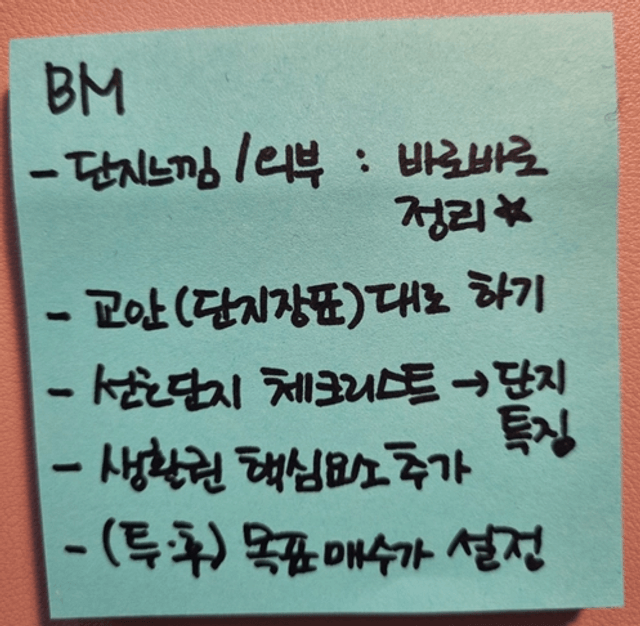 BM
- 단지느낌 / 외부 : 바로바로
정리 ☆
- 교안 (단지장표) 대로 하기
- 선호단지 체크리스트 → 단지
특징
- 생활권 핵심요소 추가
- (투·후) 목표매수가 설정